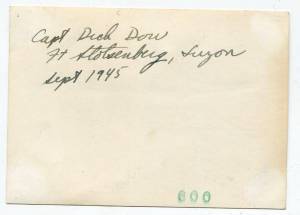 Capt Dick Dow
Ft Stotsenberg, Luzon
Sept 1945
600